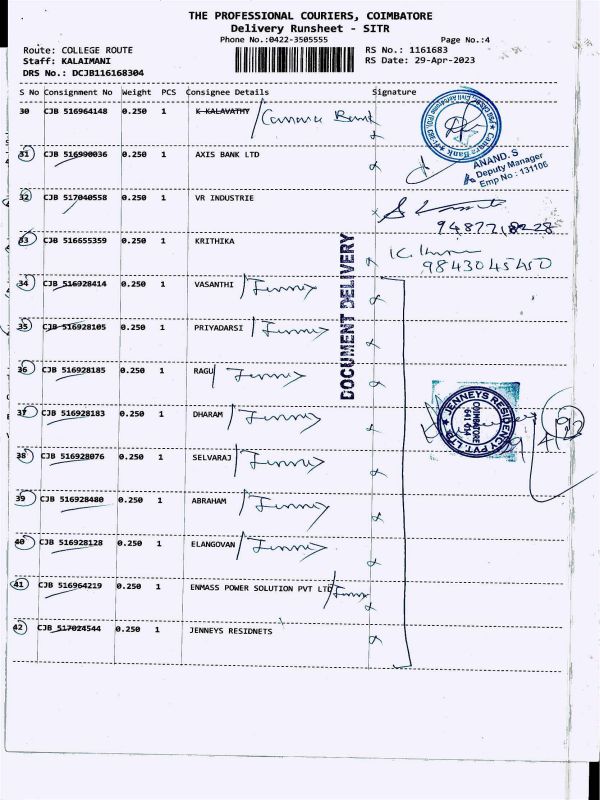 THE PROFESSIONAL COURIERS, COIMBATORE
Delivery Runsheet - SITR
Phone No.:0422-3505555 Page No.:4
Route: COLLEGE ROUTE RS No.: 1161683
Staff: KALAIMANI RS Date: 29-Apr-2023
DRS No.: DCJB116168304
S No Consignment No Weight PCS Consignee Details Signature
30 CJB 516964148 0.250 1 K KALAVATHY / Canara Bank
31 CJB 516990036 0.250 1 AXIS BANK LTD
ANAND. S
Deputy Manager
Emp No : 131106
32 CJB 517040558 0.250 1 VR INDUSTRIE
9487718228
33 CJB 516655359 0.250 1 KRITHIKA
9843045450
DOCUMENT DELIVERY
34 CJB 516928414 0.250 1 VASANTHI / Jenneys
35 CJB 516928105 0.250 1 PRIYADARSI / Jenneys
36 CJB 516928185 0.250 1 RAGU / Jenneys
37 CJB 516928183 0.250 1 DHARAM / Jenneys
JENNEYS RESIDENCY PVT. LTD.
COIMBATORE
641 014
38 CJB 516928076 0.250 1 SELVARAJ / Jenneys
39 CJB 516928480 0.250 1 ABRAHAM / Jenneys
40 CJB 516928128 0.250 1 ELANGOVAN / Jenneys
41 CJB 516964219 0.250 1 ENMASS POWER SOLUTION PVT LTD / Jenneys
42 CJB 517024544 0.250 1 JENNEYS RESIDNETS